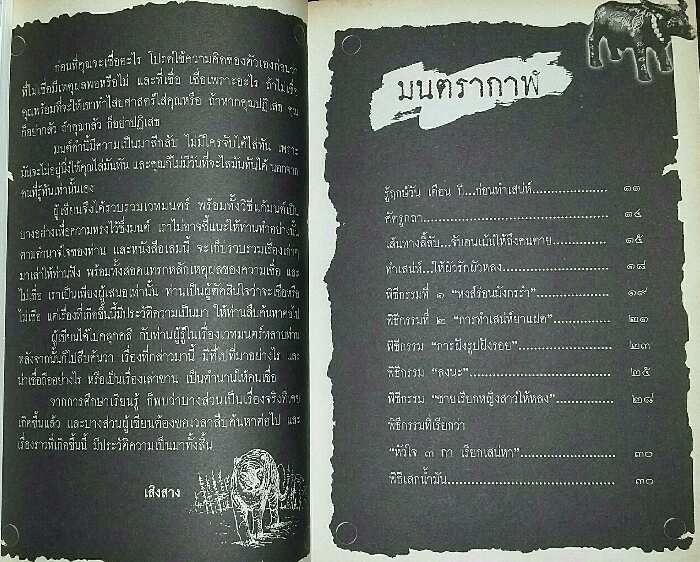 ก่อนที่คุณจะเชื่ออะไร โปรดใช้ความคิดของตัวเองก่อนว่า
ที่ไม่เชื่อมีเหตุผลพอหรือไม่ และที่เชื่อ เชื่อเพราะอะไร ถ้าไม่เชื่อ
คุณพร้อมที่จะให้เขาทำไสยศาสตร์ใส่คุณหรือ ถ้าหากคุณปฏิเสธ คุณ
ก็อย่ากลัว ถ้าคุณกลัว ก็อย่าปฏิเสธ
มนต์ดำนี้มีความเป็นมาลึกลับ ไม่มีใครจับได้ไล่ทัน เพราะ
มันจะไม่อยู่นิ่งให้คุณไล่มันทัน และคุณก็ไม่มีวันที่จะไล่มันทันได้ นอกจาก
คนที่รู้ทันเท่านั้นเอง
ผู้เขียนจึงได้รวบรวมเวทมนตร์ พร้อมทั้งวิธีแก้มนต์เป็น
บางอย่างเพื่อความทรงไว้ซึ่งมนต์ เราไม่อาจชี้แนะให้ท่านทำอย่างนั้น
ตามอำนาจใจของท่าน และหนังสือเล่มนี้ จะเก็บรวบรวมเรื่องเก่าๆ
มาเล่าให้ท่านฟัง พร้อมทั้งสอดแทรกหลักเหตุผลของความเชื่อ และ
ไม่เชื่อ เราเป็นเพียงผู้เสนอเท่านั้น ท่านเป็นผู้ตัดสินใจว่าจะเชื่อหรือ
ไม่เชื่อ แต่เรื่องที่เกิดขึ้นนี้มีประวัติความเป็นมา ให้ท่านสืบค้นหาต่อไป
ผู้เขียนได้ไปคลุกคลี กับท่านผู้รู้ในเรื่องเวทมนตร์หลายท่าน
หลังจากนั้นก็ไปสืบค้นว่า เรื่องที่กล่าวมานี้ มีที่ไปที่มาอย่างไร และ
น่าเชื่อถืออย่างไร หรือเป็นเรื่องเล่าขาน เป็นตำนานให้คนเชื่อ
จากการศึกษาเรียนรู้ ก็พบว่าบางส่วนเป็นเรื่องจริงที่เคย
เกิดขึ้นแล้ว และบางส่วนผู้เขียนต้องขอเวลาสืบค้นหาต่อไป และ
เรื่องราวที่เกิดขึ้นนี้ มีประวัติความเป็นมาทั้งสิ้น
เสิงสาง
มนตรากาฬ
รู้ฤกษ์วัน เดือน ปี...ก่อนทำเสน่ห์..................... ๑๑
ศัตรูกถา..................................................... ๑๔
เส้นทางลี้ลับ...จับคนเป็นให้ถึงคนตาย............... ๑๕
ทำเสน่ห์...ให้ผัวรักผัวหลง............................ ๑๘
พิธีกรรมที่ ๑ "หงส์ร่อนมังกรรำ".................... ๑๙
พิธีกรรมที่ ๒ "การทำเสน่ห์ยาแฝด"................ ๒๑
พิธีกรรม "การฝังรูปฝังรอย".......................... ๒๓
พิธีกรรม "ลงนะ"........................................ ๒๕
พิธีกรรม "ชายเรียกหญิงสาวให้หลง"............... ๒๘
พิธีกรรมที่เรียกว่า
"หัวใจ ๓ กา เรียกเสน่หา"............................ ๓๐
พิธีเสกน้ำมัน............................................. ๓๐